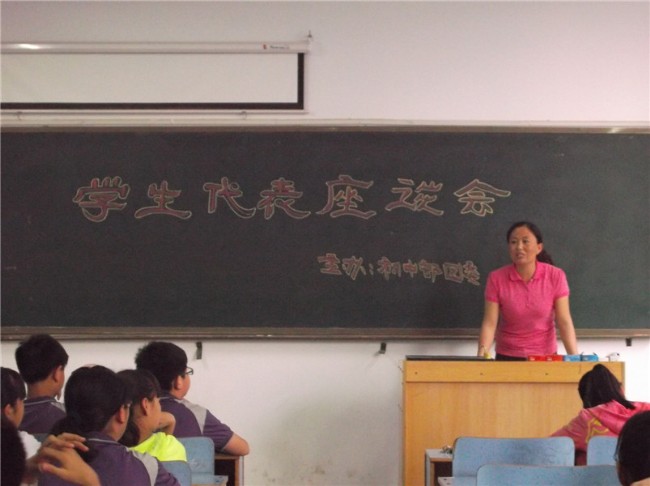 学生代表座谈会
主办：初中部团委